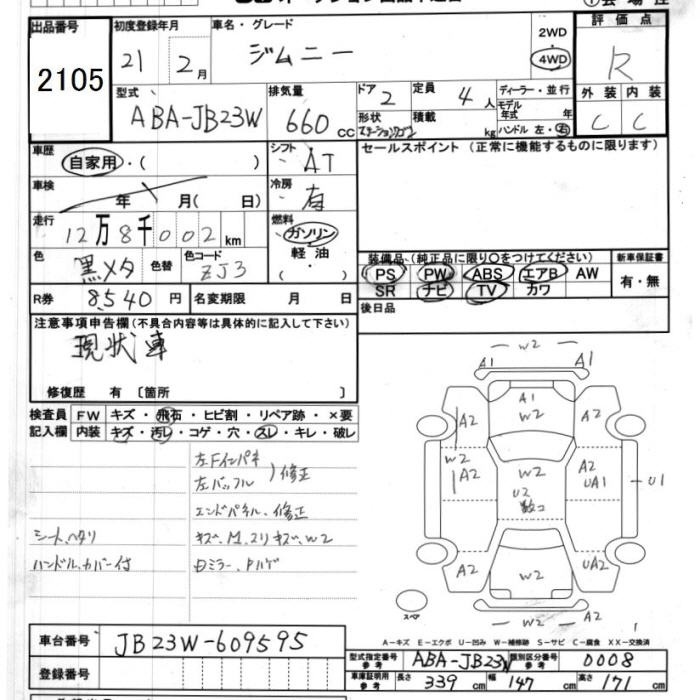 出品番号 2105
初度登録年月 21 2月
車名・グレード ジムニー
2WD
4WD
評価点 R
外装 内装
C C
型式 ABA-JB23W
排気量 660 CC
ドア 2
定員 4人
形状
積載 kg
ディーラー・並行
モデル年式 年
ハンドル 左・右
車歴 自家用・( )
シフト AT
セールスポイント(正常に機能するものに限ります)
車検 年 月( 日)
冷房 有
走行 12万8千002km
燃料 ガソリン
軽油
・( )
色 黒メタ 色替
色コード ZJ3
装備品(純正品に限り○をつけてください)
PS PW ABS エアB AW
SR ナビ TV カワ
新車保証書
有・無
R券 8,540円
名変期限 月 日
後日品
注意事項申告欄(不具合内容等は具体的に記入して下さい)
現状車
修復歴 有〔箇所 〕
検査員 FW キズ・飛石・ヒビ割・リペア跡・×要
記入欄 内装 キズ・汚レ・コゲ・穴・スレ・キレ・破レ
左Fインパネ
左バッフル )修正
エンドパネル、修正
シート、ヘタリ
キズ、M、スリキズ、W2
ハンドル、カバー付
W2
A1 A1
A1
W2
A2 A2
W2
A2
W2
A2
UA1
U1
U2
数コ
A2 W2 UA2
A2 W2 A2
スペア
A-キズ E-エクボ U-凹み W-補修跡 S-サビ C-腐食 XX-交換済
車台番号 JB23W-609595
登録番号
型式指定番号参考 ABA-JB23W
類別区分番号参考 0008
車庫証明用参考 長さ 339cm 幅 147cm 高さ 171cm